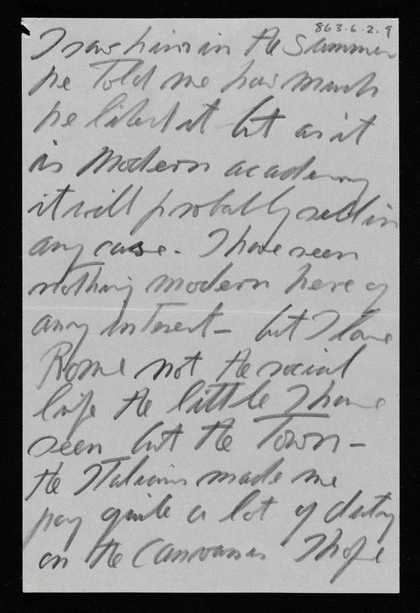 863.6.2.9
I saw him in the Summer
he Told me how much
he liked it but as it
is Modern academy
it will probably sell in
any case. I have seen
nothing modern here of
any interest – but I love
Rome not the social
life the little I have
seen but the Town –
the Italians made me
pay quite a lot of duty
on the Canvases I hope